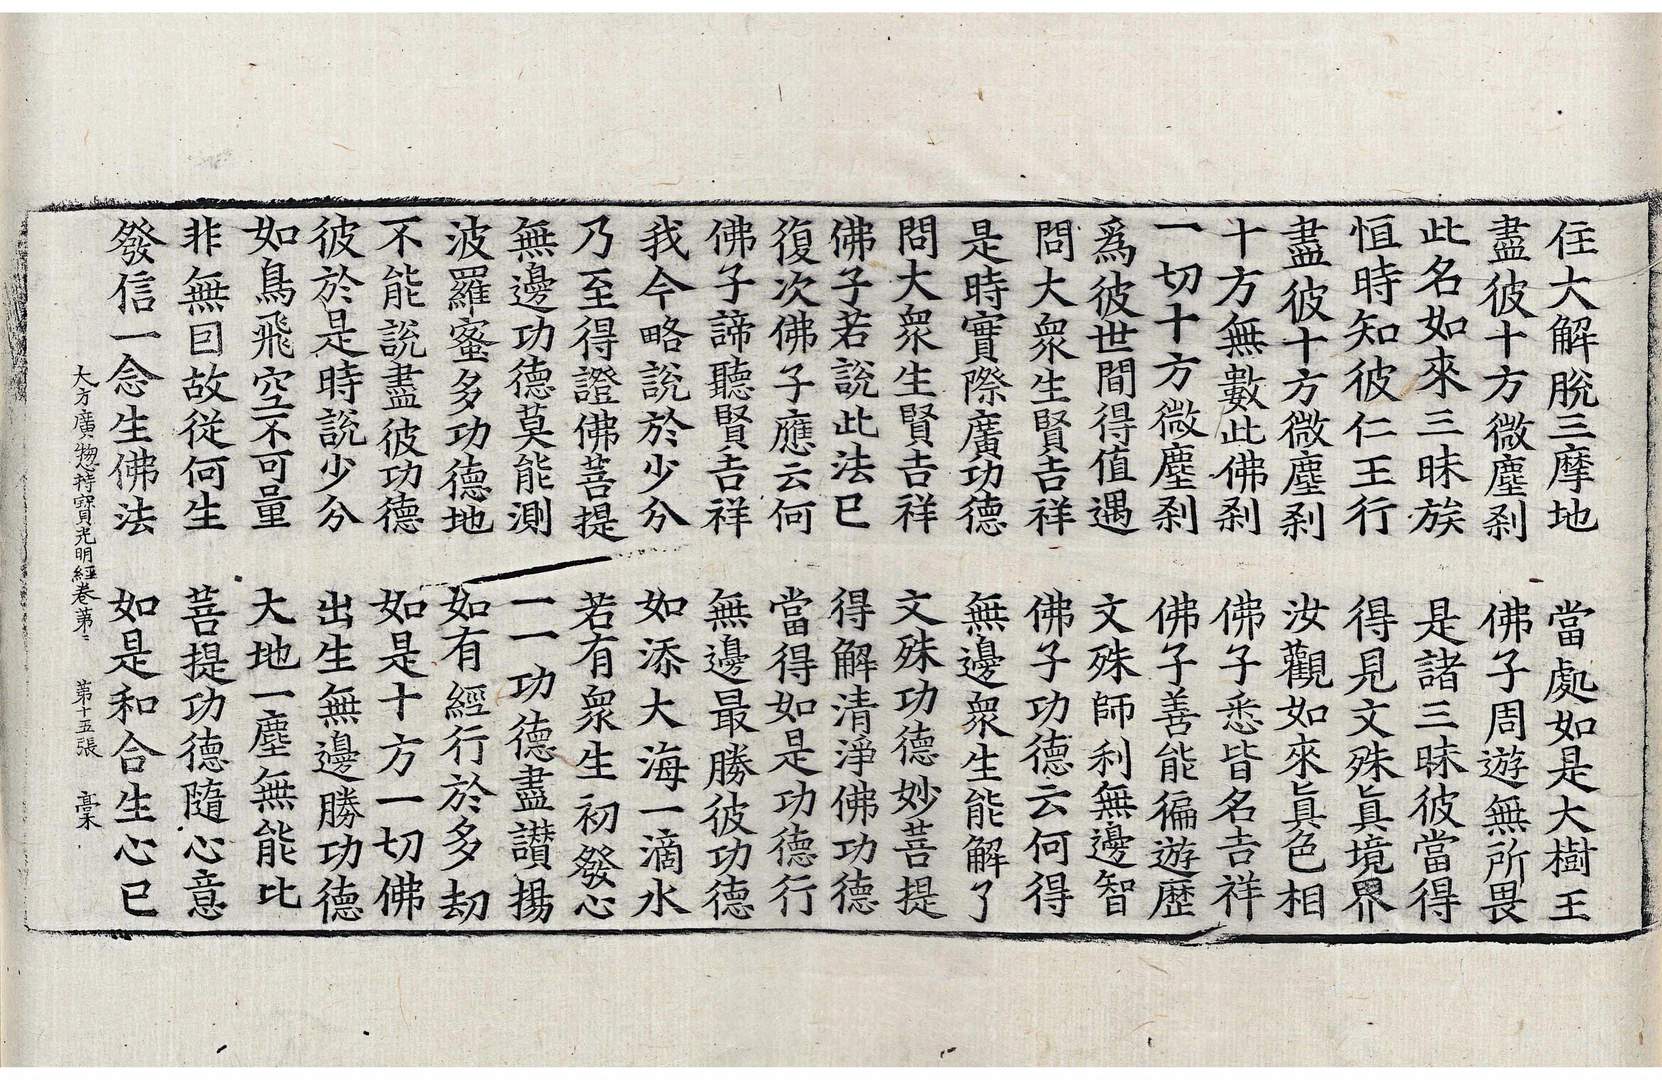 住大解脫三摩地　當處如是大樹王
盡彼十方微塵剎　佛子周遊無所畏
此名如來三昧族　是諸三昧彼當得
恒時知彼仁王行　得見文殊眞境界
盡彼十方微塵剎　汝觀如來眞色相
十方無數此佛剎　佛子悉皆名吉祥
一切十方微塵剎　佛子善能徧遊歷
爲彼世間得值遇　文殊師利無邊智
問大衆生賢吉祥　佛子功德云何得
是時實際廣功德　無邊衆生能解了
問大衆生賢吉祥　文殊功德妙菩提
佛子若說此法已　得解清淨佛功德
復次佛子應云何　當得如是功德行
佛子諦聽賢吉祥　無邊最勝彼功德
我今略說於少分　如添大海一滴水
乃至得證佛菩提　若有衆生初發心
無邊功德莫能測　一一功德盡讃揚
波羅蜜多功德地　如有經行於多劫
不能說盡彼功德　如是十方一切佛
彼於是時說少分　出生無邊勝功德
如鳥飛空不可量　大地一塵無能比
非無囙故從何生　菩提功德隨心意
發信一念生佛法　如是和合生心已
大方廣惣持寶光明經卷第二　第十五張　稾